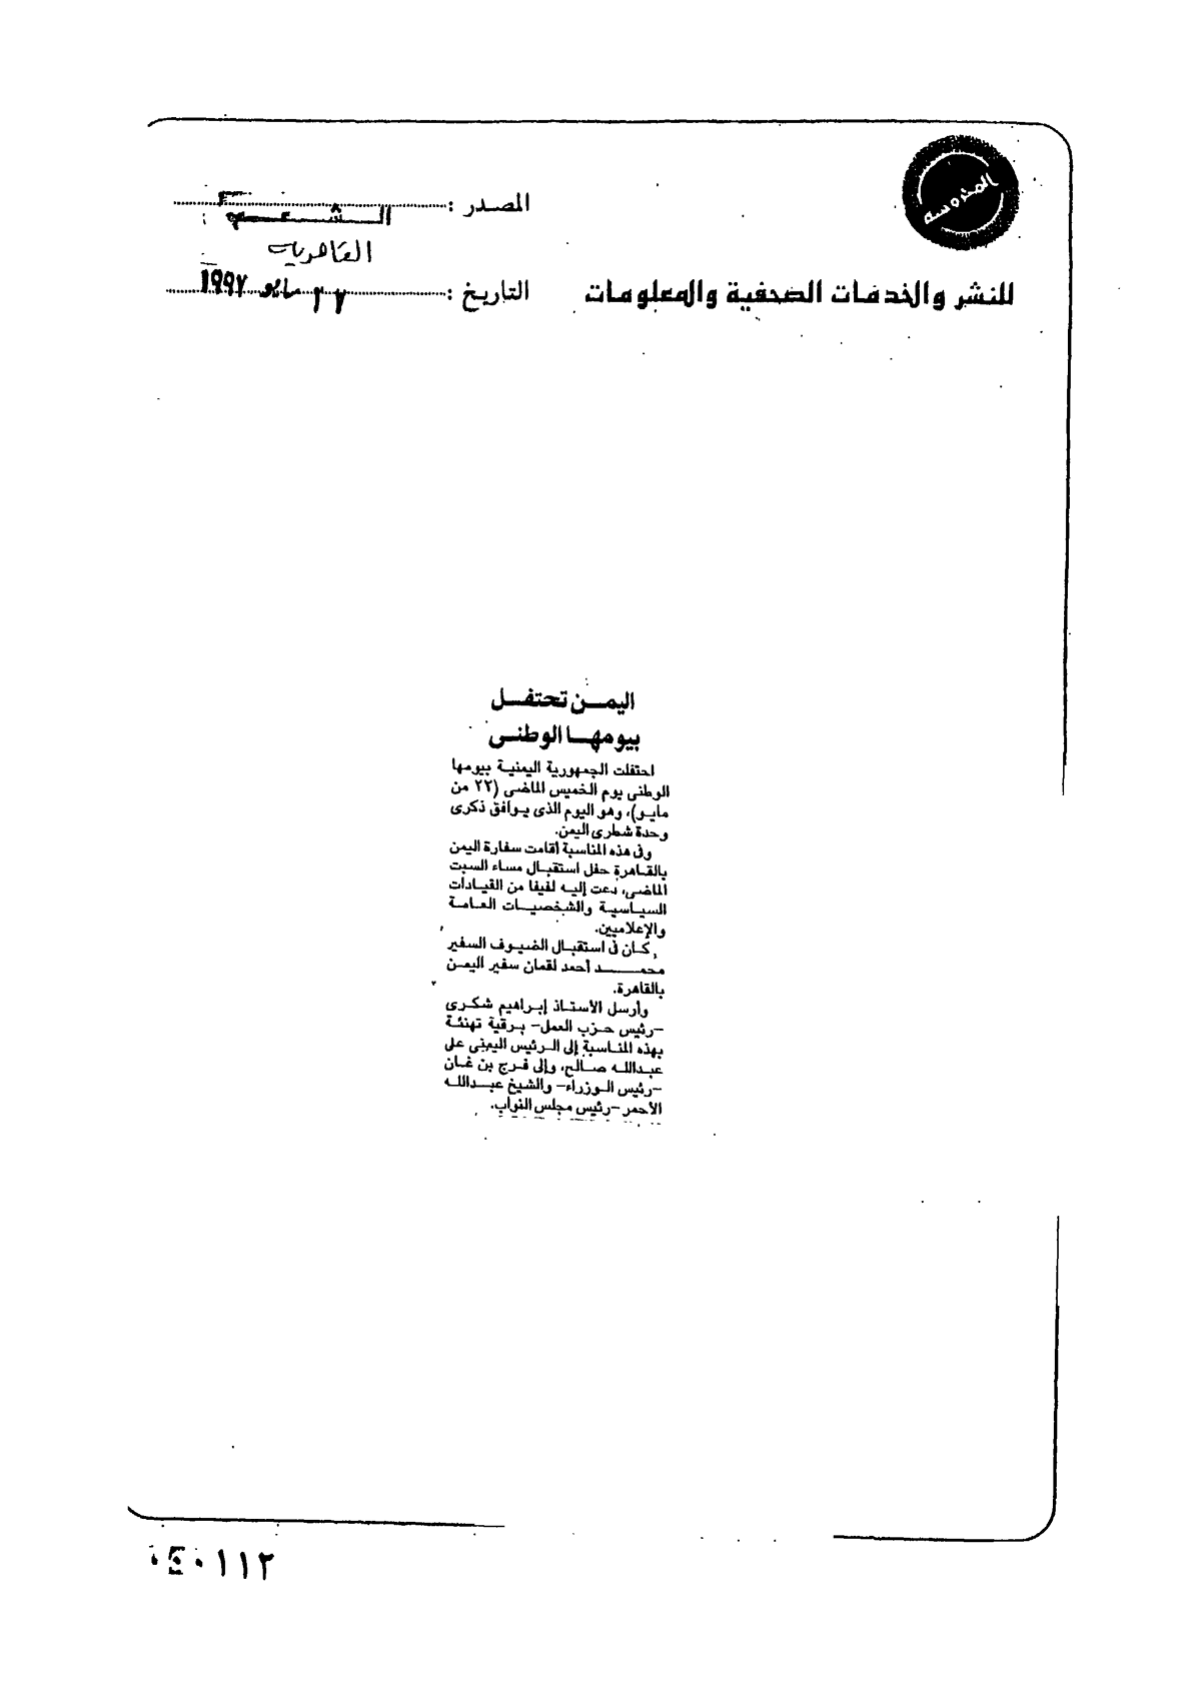 المحروسة
للنشر والخدمات الصحفية والمعلومات
المصدر : الشعب
القاهرية
التاريخ : ٢٧ مايو ١٩٩٧
اليمــن تحتفــل
بيومهــا الوطنــى
احتفلت الجمهورية اليمنية بيومها
الوطنى يوم الخميس الماضى (٢٢ من
مايو)، وهو اليوم الذى يوافق ذكرى
وحدة شطرى اليمن.
وفى هذه المناسبة أقامت سفارة اليمن
بالقاهرة حفل استقبال مساء السبت
الماضى، دعت إليه لفيفا من القيادات
السياسية والشخصيات العامة
والإعلاميين.
كان فى استقبال الضيوف السفير
محمــــد أحمد لقمان سفير اليمن
بالقاهرة.
وأرسل الأستاذ إبراهيم شكرى
-رئيس حزب العمل- برقية تهنئة
بهذه المناسبة إلى الرئيس اليمنى على
عبدالله صالح، وإلى فرج بن غان
-رئيس الوزراء- والشيخ عبدالله
الأحمر -رئيس مجلس النواب.